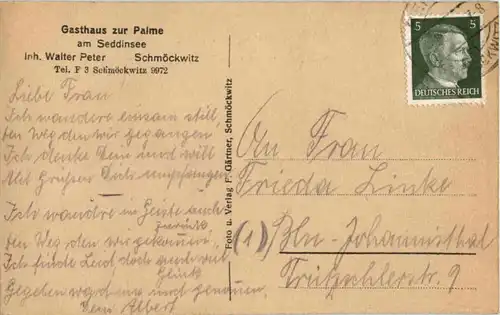 Gasthaus zur Palme
am Seddinsee
Inh. Walter Peter Schmöckwitz
Tel. F 3 Schmöckwitz 9972
Liebe Frau!
Ich wandere einsam still,
den Weg den wir gegangen
Ich denke Dein und will
Mit Grüßen Dich umpfangen
Ich wandre im Geiste auch
zurück
den Weg den wir gekommen,
Ich finde Leid doch auch viel
Glück
Gegeben ward uns und genommen.
Dein Albert
Foto u. Verlag F. Gärtner, Schmöckwitz
An Frau
Frieda Linke
(1) Bln-Johannisthal
Trützschlerstr. 9
5 5
DEUTSCHES REICH